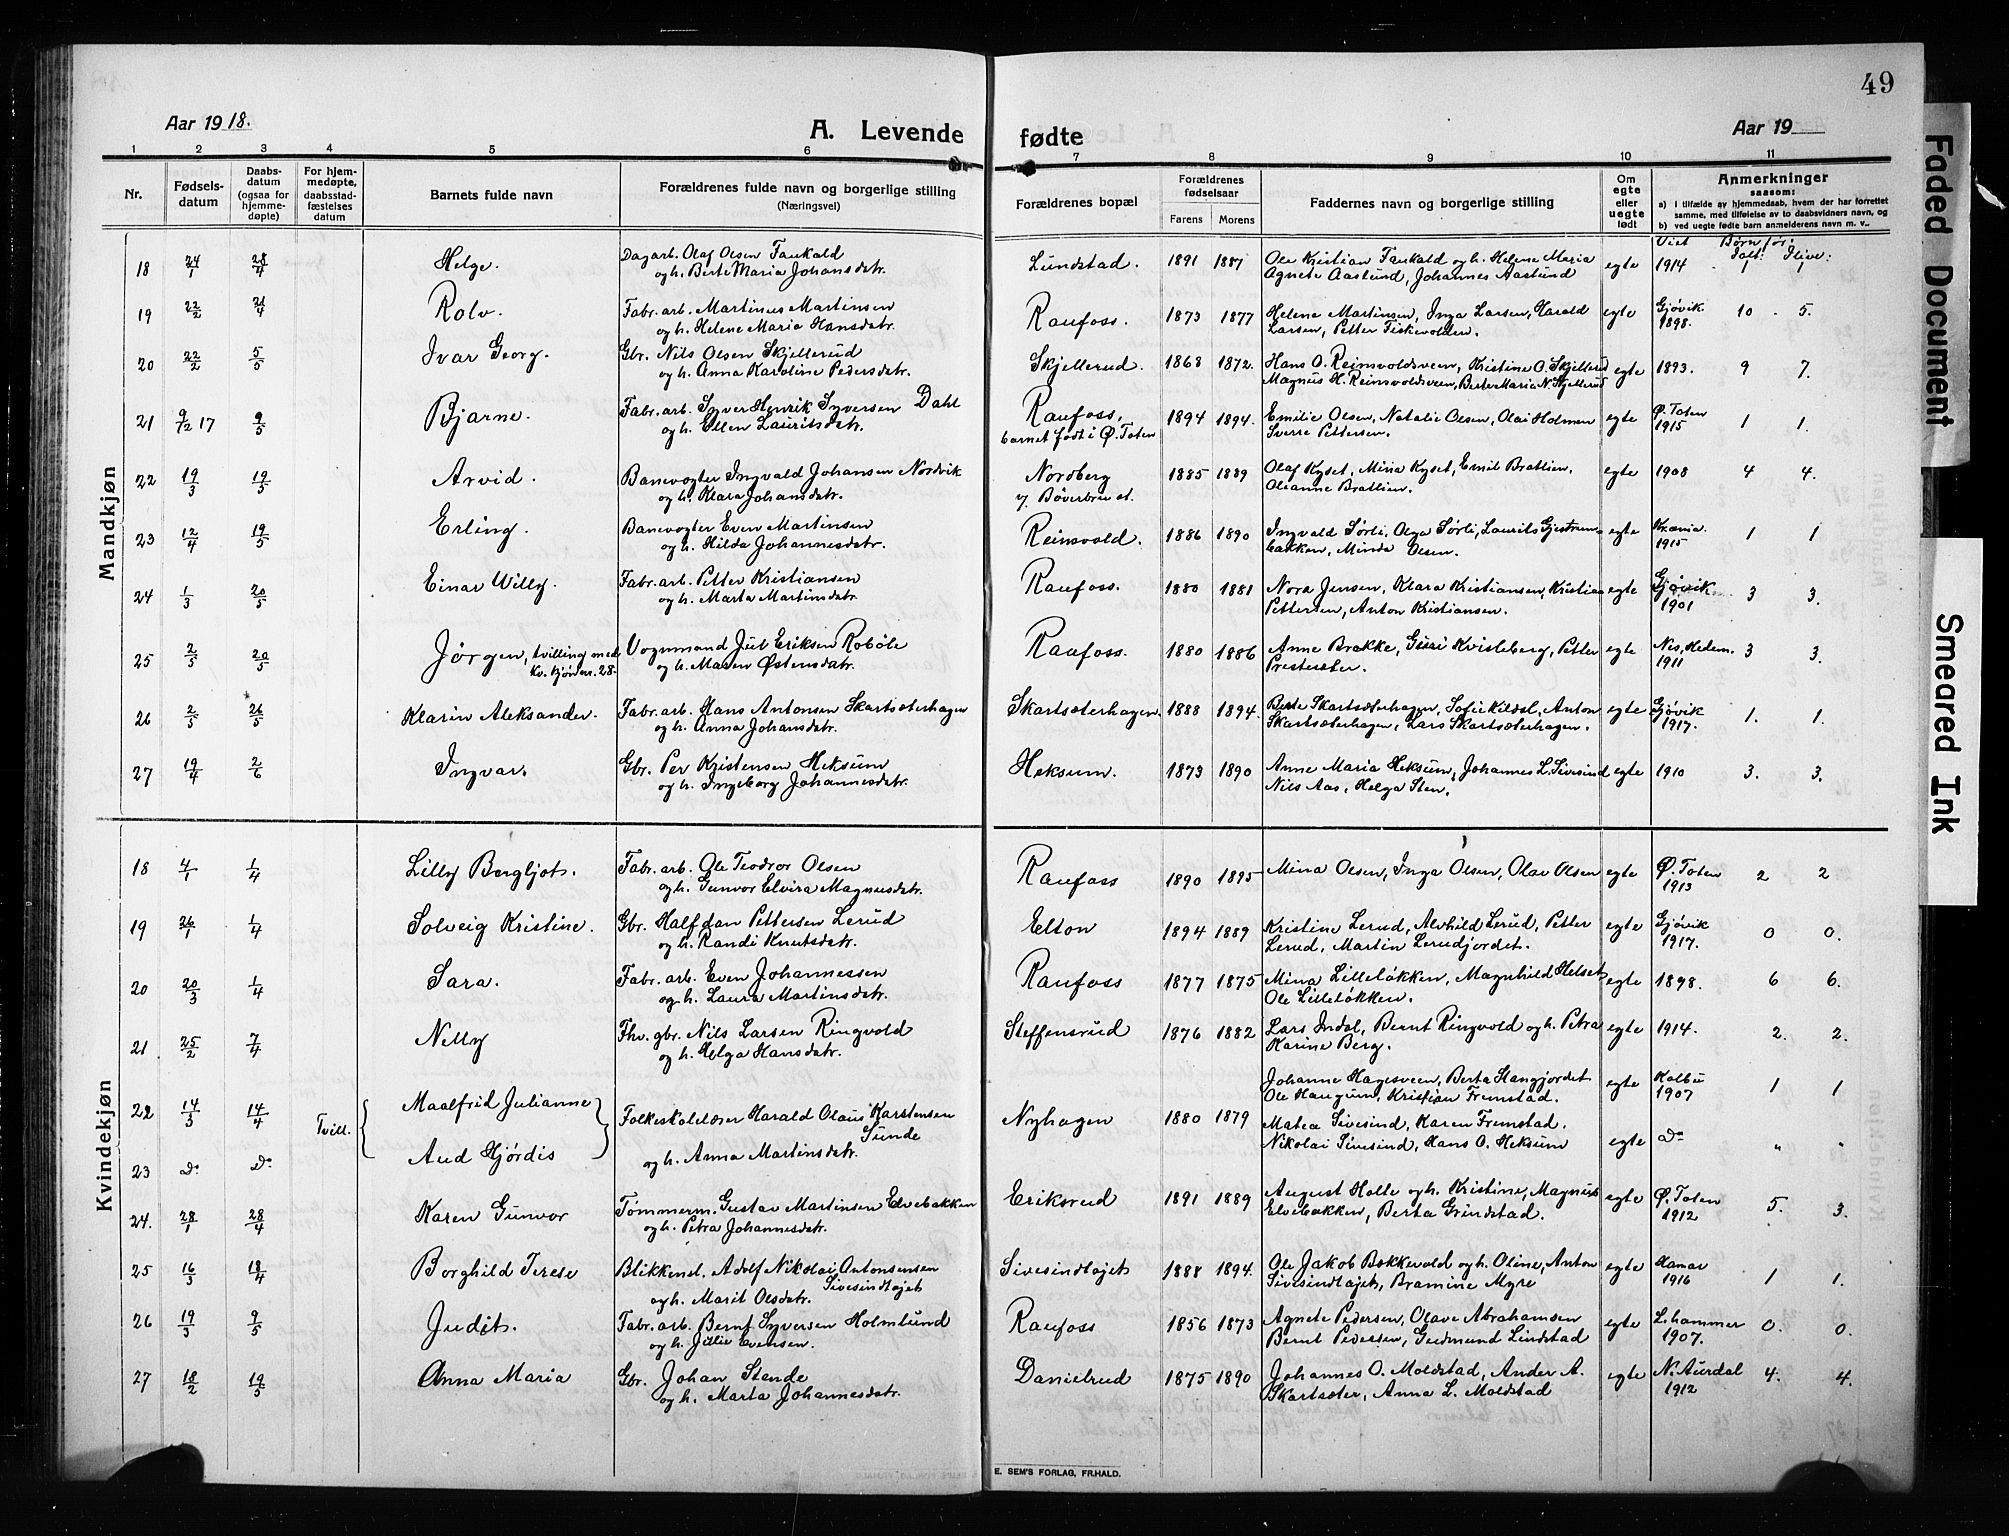 49
Aar 1918.
A. Levende fødte
Aar 19
1 2 3 4 5 6 7 8 9 10 11
Nr.
Fødsels-
datum
Daabs-
datum
(ogsaa for
hjemme-
døpte)
For hjem-
medøpte,
daabsstad-
fæstelses
datum
Barnets fulde navn
Forældrenes fulde navn og borgerlige stilling
(Næringsvei)
Forældrenes bopæl
Forældrenes
fødselsaar
Farens Morens
Faddernes navn og borgerlige stilling
Om
egte
eller
uegte
født
Anmerkninger
saasom:
a) I tilfælde av hjemmedaab, hvem der har forrettet
samme, med tilføielse av to daabsvidners navn, og
b) ved uegte fødte barn anmelderens navn m. v..
Viet Børn før:
Født: Ilive:
Mandkjøn
18 24/1 28/4 Helge. Dagarb. Olaf Olsen Faukald Lundstad. 1891 1887 Ole Kristian Faukald og h. Helene Maria egte 1914 1 1
og h. Berte Maria Johansdatr. Agnete Aaslund, Johannes Aaslund
19 22/2 21/4 Rolv. Fabr. arb. Martinus Martinsen Raufoss. 1873 1877 Helene Martinsen, Inga Larsen, Harald egte Gjøvik 10 5.
og h. Helene Maria Hansdatr. Larsen, Petter Fiskevolden. 1898.
20 22/2 5/5 Ivar Georg. Gbr. Nils Olsen Skjellerud Skjellerud. 1868 1872. Hans O. Reinsvoldsveen, Kristine O. Skjellerud egte 1893. 9 7.
og h. Anna Karoline Pedersdatr. Magnus H. Reinsvoldsveen, Berte Maria N. Skjellerud
21 9/12 17 9/5 Bjarne. Fabr. arb. Syver Henrik Syversen Dahl Raufoss, 1894 1894. Emilie Olsen, Natalie Olsen, Olai Holmen egte Ø. Toten 1 1.
og h. Ellen Lauritsdatr. barnet født i Ø. Toten Sverre Pettersen. 1915
22 19/3 19/5 Arvid. Banevogter Ingvald Johansen Nordvik Nordberg 1885 1889 Olaf Kyset, Mina Kyset, Emil Brattlien, egte 1908 4 4.
og h. Klara Johansdatr. v. Bøverbru st. Oleanne Brattlien.
23 12/4 19/5 Erling. Banevogter Even Martinsen Reinsvold. 1886 1890 Ingvald Sørli, Olga Sørli, Laurits Gjestrum- egte Kr.ania 1 1
og h. Hilda Johannesdatr. bakken, Minda Olsen. 1915
24 1/3 20/5 Einar Willy. Fabr. arb. Petter Kristiansen Raufoss. 1880 1881 Nora Jensen, Klara Kristiansen, Kristian egte Gjøvik 3 3.
og h. Marta Martinsdatr. Pettersen, Anton Kristiansen. 1901
25 2/5 20/5 Jørgen, tvilling med Vognmand Jul Eriksen Robøle Raufoss. 1880 1886 Anne Brakke, Guri Kvisleberg, Petter egte Nes, Hedem. 3 3.
kv. kjøn nr. 28. og h. Maren Østensdatr. Prestesæter. 1911
26 2/5 26/5 Klarin Aleksander. Fabr. arb. Hans Antonsen Skartsæterhagen Skartsæterhagen. 1888 1894. Berte Skartsæterhagen, Sofie Kildal, Anton egte Gjøvik 1. 1.
og h. Anna Johansdatr. Skartsæterhagen, Lars Skartsæterhagen. 1917.
27 19/4 2/6 Ingvar. Gbr. Per Kristensen Heksum Heksum. 1873 1890 Anne Maria Heksum, Johannes L. Sivesind egte 1910 3. 3.
og h. Ingeborg Johannesdatr. Nils Aas, Helga Sten.
Kvindekjøn
18 4/1 1/4 Lilly Bergljot. Fabr. arb. Ole Teodor Olsen Raufoss 1890 1895 Mina Olsen, Inga Olsen, Olav Olsen egte Ø. Toten 2 2
og h. Gunvor Elvira Magnusdatr. 1913
19 26/1 1/4 Solveig Kristine. Gbr. Halfdan Pettersen Lerud Elton 1894 1889 Kristine Lerud, Alvhild Lerud, Petter egte Gjøvik 0 0.
og h. Randi Knutsdatr. Lerud, Martin Lerudjordet. 1917.
20 20/3 1/4 Sara. Fabr. arb. Even Johannessen Raufoss 1877 1875 Mina Lilleløkken, Magnhild Helset, egte 1898. 6 6.
og h. Laura Martinsdatr. Ole Lilleløkken.
21 25/2 7/4 Nelly Fhv. gbr. Nils Larsen Ringvold Steffensrud 1876 1882 Lars Indal, Bernt Ringvold og h. Petra egte 1914. 2. 2.
og h. Helga Hansdatr. Karine Berg.
22 14/3 14/4 Tvill. Maalfrid Julianne Folkeskolelærer Harald Olaus Karstensen Sunde Nyhagen 1880 1879 Johanne Hagesveen, Berta Haugjordet egte Kolbu 1 1
Ole Haugum, Kristian Fremstad. 1907
23 do do Aud Hjørdis og h. Anna Martinsdatr. Matea Sivesind, Karen Fremstad. egte do " "
Nikolai Sivesind, Hans O. Heksum
24. 28/1 28/4 Karen Gunvor Tømmerm. Gustav Martinsen Elvebakken Eriksrud 1891 1889 August Holte og h. Kristine, Magnus egte Ø. Toten 5. 3.
og h. Petra Johannesdatr. Elvebakken, Berta Grindstad. 1912
25 16/3 18/4 Borghild Terese Blikkensl. Adolf Nikolai Antonsensen Sivesindtøjet Sivesindtøjet 1888 1894. Ole Jakob Bakkevold og h. Oline, Anton egte Hamar 1 1.
og h. Marit Olsdatr. Sivesindtøjet, Bramine Myre 1916
26 19/3 9/5 Judit. Fabr. arb. Bernt Syversen Holmlund Raufoss 1856 1873 Agnete Pedersen, Olave Abrahamsen egte L.hammer 0. 0.
og h. Julie Evensen. Bernt Pedersen, Gudmund Lindstad 1907.
27 18/2 19/5 Anna Maria Gbr. Johan Stande Danielrud 1875 1890 Johannes O. Moldstad, Ander A. egte N. Aurdal 4. 4.
og h. Marta Johannesdatr. Skartsæter, Anna L. Moldstad 1912
E. SEM'S FORLAG, FR.HALD.
Faded Document
Smeared Ink